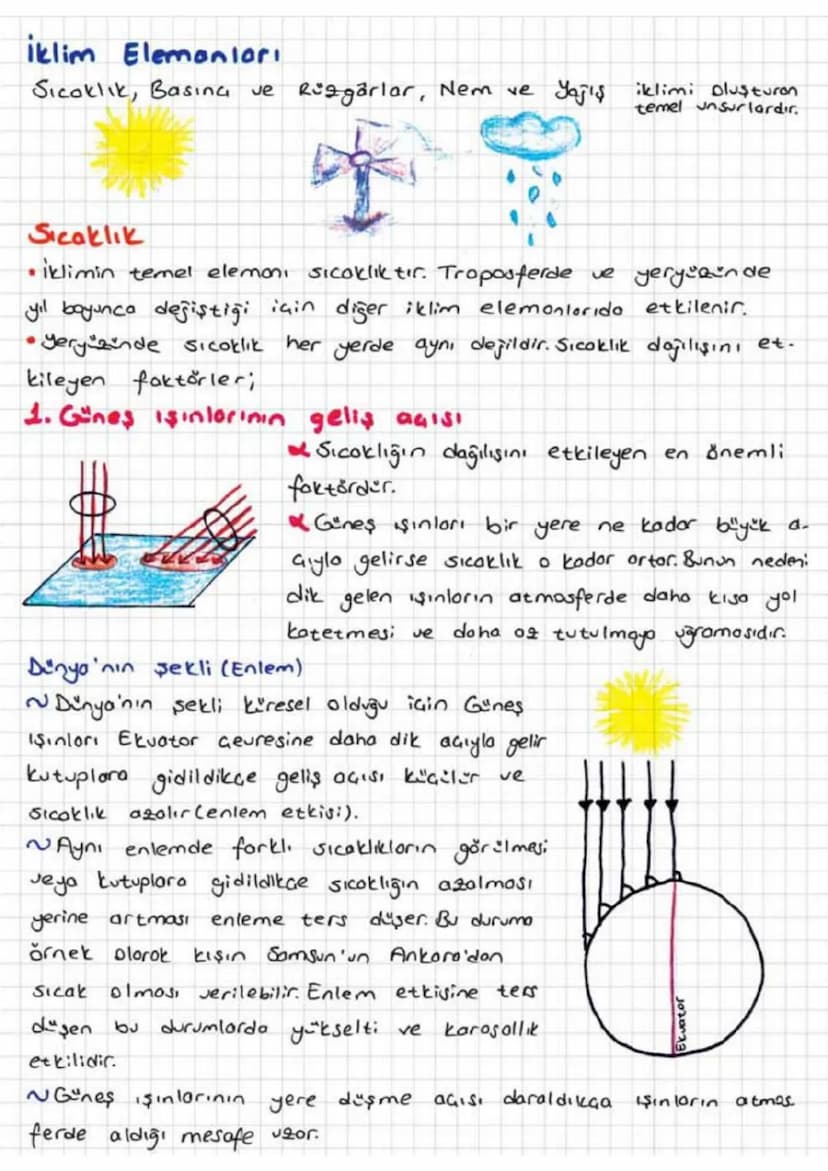 İklim Elemanları
Sıcaklık, Basınç ve Rüzgârlar, Nem ve Yağış iklimi oluşturan
temel unsurlardır.
Sıcaklık
• İklimin temel elemanı sıcaklıktır. Troposferde ve yeryüzünde
yıl boyunca değiştiği için diğer iklim elemanlarıda etkilenir.
• Yeryüzünde sıcaklık her yerde aynı değildir. Sıcaklık dağılışını et-
kileyen faktörler;
1. Güneş ışınlarının geliş açısı
α Sıcaklığın dağılışını etkileyen en önemli
faktördür.
α Güneş ışınları bir yere ne kadar büyük a-
çıyla gelirse sıcaklık o kadar artar. Bunun nedeni
dik gelen ışınların atmosferde daha kısa yol
katetmesi ve daha az tutulmaya uğramasıdır.
Dünya'nın Şekli (Enlem)
~ Dünya'nın şekli küresel olduğu için Güneş
ışınları Ekvator çevresine daha dik açıyla gelir
kutuplara gidildikçe geliş açısı küçülür ve
sıcaklık azalır (enlem etkisi).
~ Aynı enlemde farklı sıcaklıkların görülmesi
veya kutuplara gidildikçe sıcaklığın azalması
yerine artması enleme ters düşer. Bu duruma
örnek olarak kışın Samsun'un Ankara'dan
sıcak olması verilebilir. Enlem etkisine ters
düşen bu durumlarda yükselti ve karasallık
etkilidir.
Ekvator
~ Güneş ışınlarının yere düşme açısı daraldıkça ışınların atmos
ferde aldığı mesafe uzar.